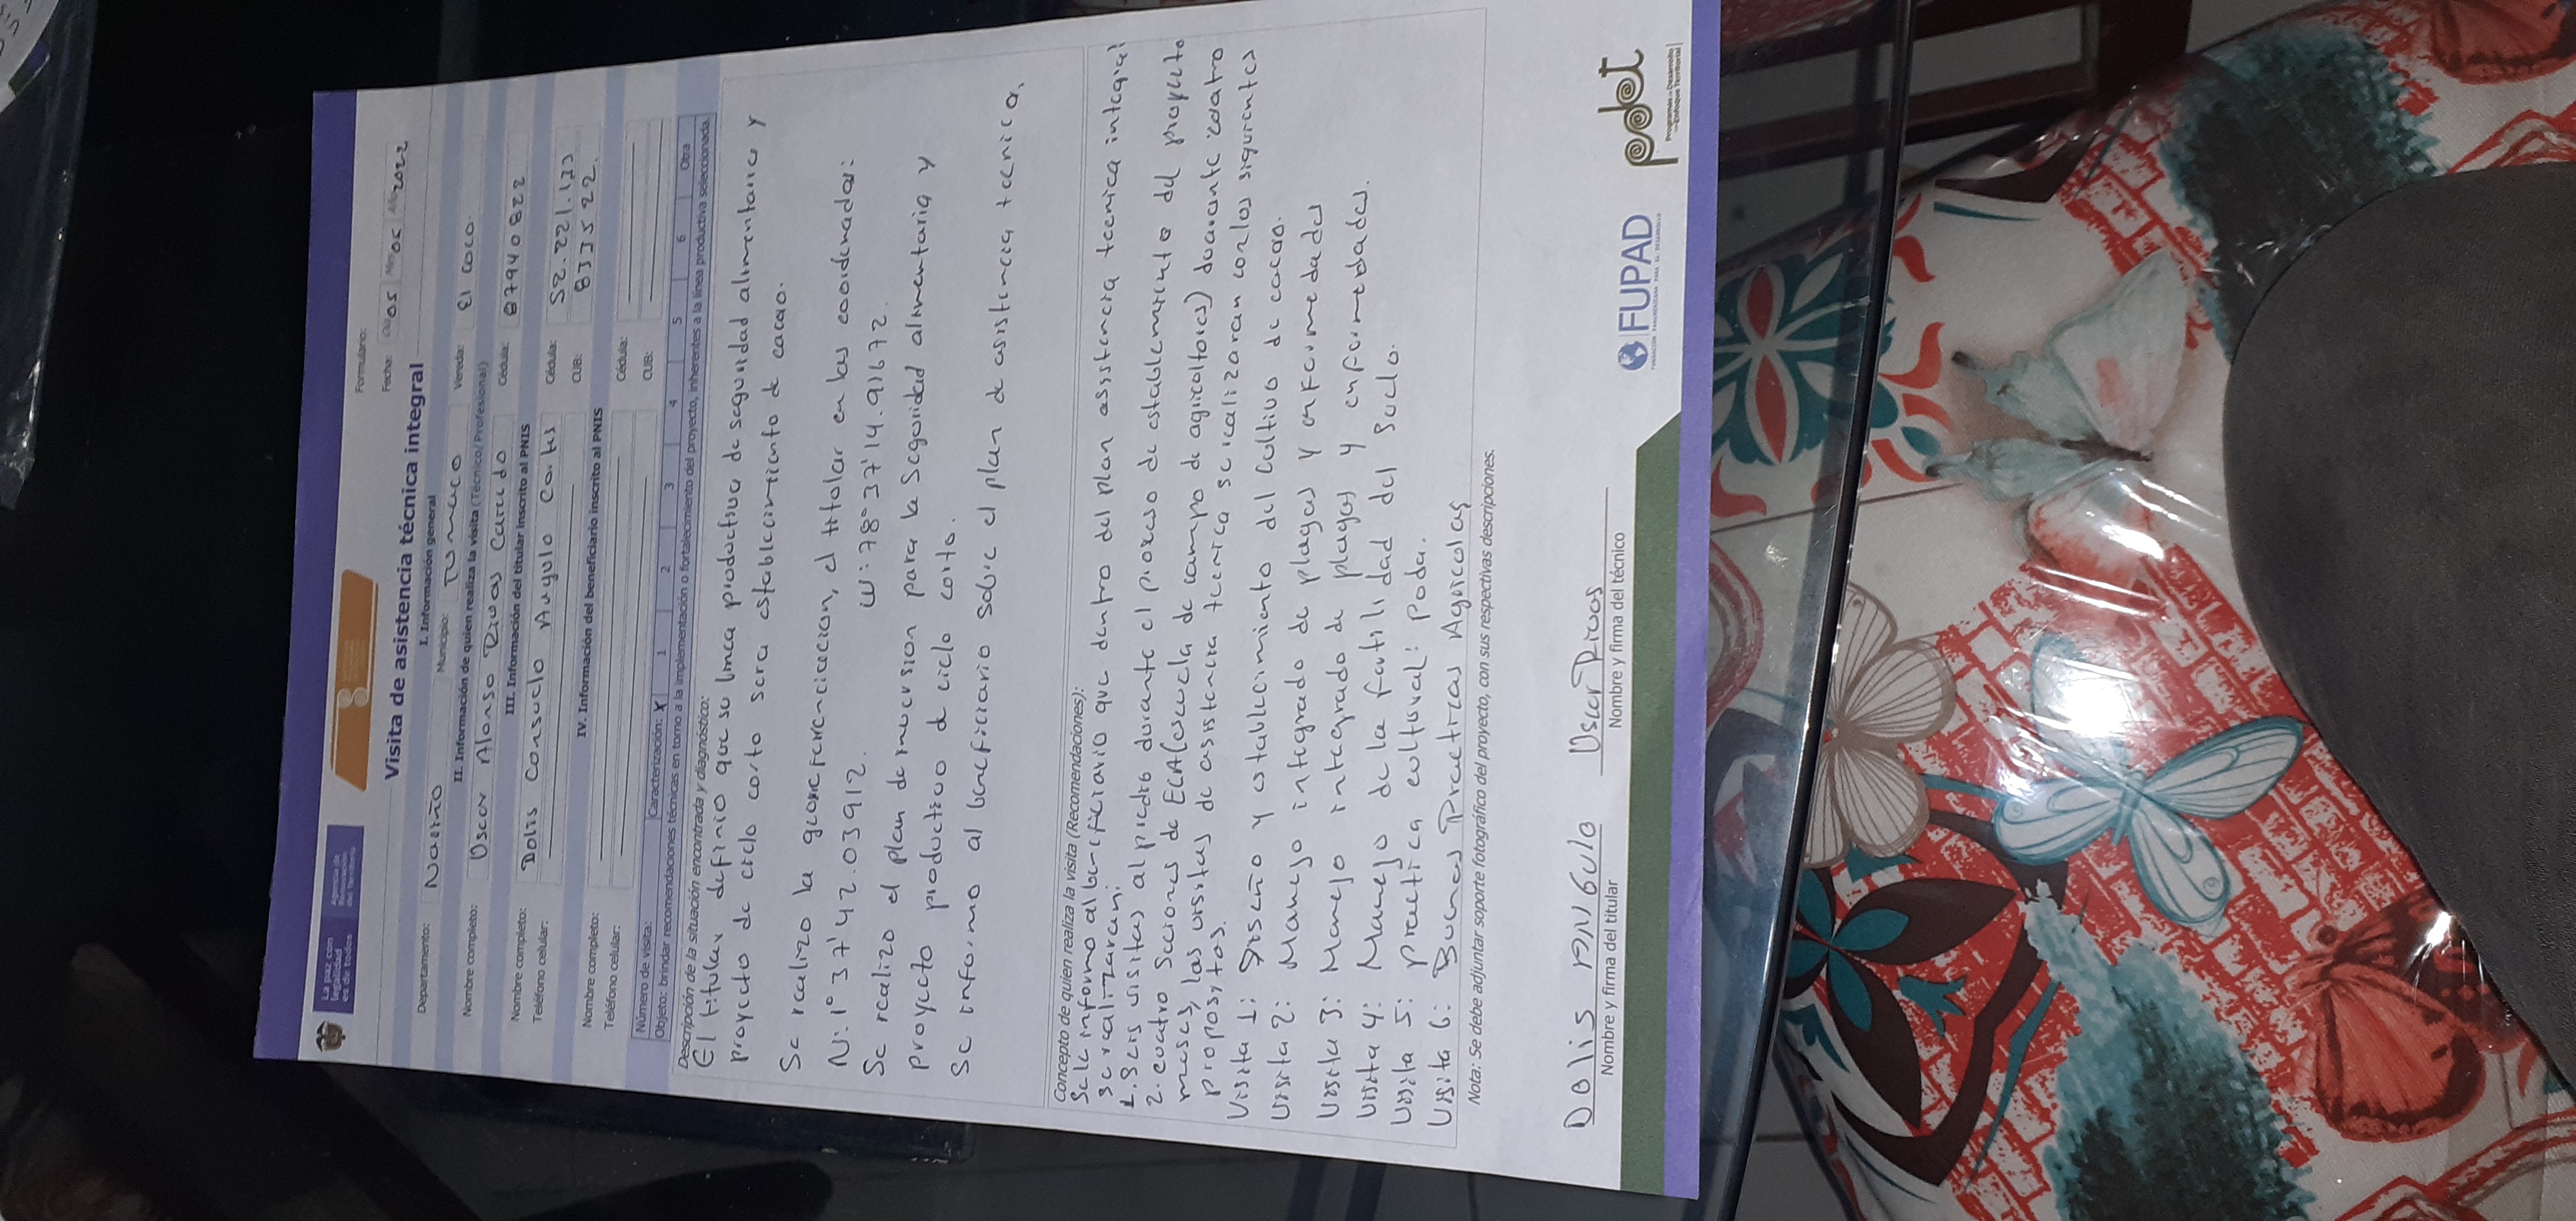 La paz con
legalidad
es de todos
Agencia de
Renovación
del Territorio
Formulario:
Visita de asistencia técnica integral
Fecha: Día 05 Mes 05 Año 2022
I. Información general
Departamento: Nariño Municipio: Tumaco Vereda: El Coco.
II. Información de quien realiza la visita (Técnico/Profesional)
Nombre completo: Oscar Alonso Rivas Caicedo Cédula: 87940822
III. Información del titular inscrito al PNIS
Nombre completo: Dolis Consuelo Angulo Cortes Cédula: 52.221.133
Teléfono celular: CUB: 833522.
IV. Información del beneficiario inscrito al PNIS
Nombre completo: Cédula:
Teléfono celular: CUB:
Número de visita: Caracterización: X 1 2 3 4 5 6 Otra
Objeto: brindar recomendaciones técnicas en torno a la implementación o fortalecimiento del proyecto, inherentes a la línea productiva seleccionada.
Descripción de la situación encontrada y diagnóstico:
El titular definio que su linea productiva de seguridad alimentaria y
proyecto de ciclo corto sera establecimiento de cacao.
Se realizo la georeferenciacion, el titular en las coordenadas:
N: 1° 37' 42.03912. W: 78° 37' 14.91672.
Se realizo el plan de inversion para la Seguridad alimentaria y
proyecto productivo de ciclo corto.
Se informo al beneficiario sobre el plan de asistencia tecnica.
Concepto de quien realiza la visita (Recomendaciones):
Se le informo al beneficiario que dentro del plan asistencia tecnica integral
se realizaran:
1. Seis visitas al predio durante el proceso de establecimiento del proyecto
2. cuatro Secciones de ECA (escuela de campo de agricultores) durante cuatro
meses, las visitas de asistencia tecnica se realizaran con los siguientes
propositos.
Visita 1: Diseño y establecimiento del cultivo de cacao.
Visita 2: Manejo integrado de plagas y enfermedades
Visita 3: Manejo integrado de plagas y enfermedades.
Visita 4: Manejo de la fertilidad del Suelo.
Visita 5: practica cultural: Poda.
Visita 6: Buenas Practicas Agricolas
Nota: Se debe adjuntar soporte fotográfico del proyecto, con sus respectivas descripciones.
Dolis ANGulo Oscar Rivas
Nombre y firma del titular Nombre y firma del técnico
FUPAD
FUNDACIÓN PANAMERICANA PARA EL DESARROLLO
pdet
Programas de Desarrollo
con Enfoque Territorial